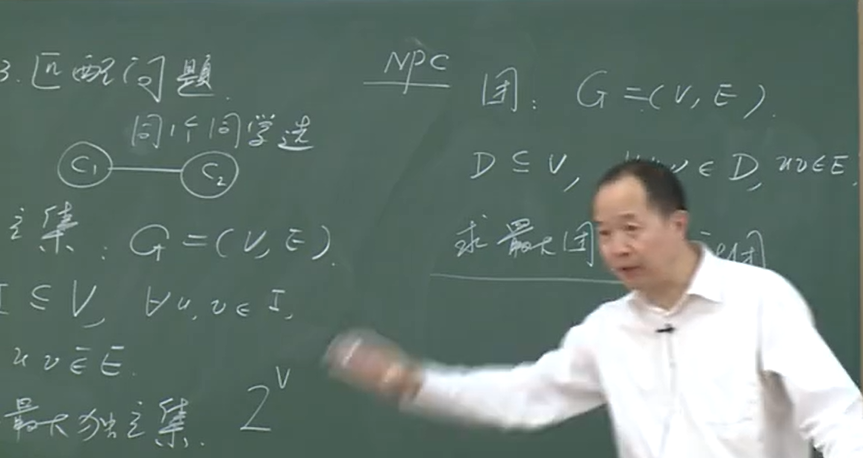 3. 匹配问题.
同1个同学选
C1 C2
立集: G=(V,E).
I ⊆ V, ∀u,v ∈ I,
uv ∈̄ E.
最大独立集. 2^V
NPC
团: G=(V,E).
D ⊆ V, v ∈ D, uv ∈ E.
求最大团 团